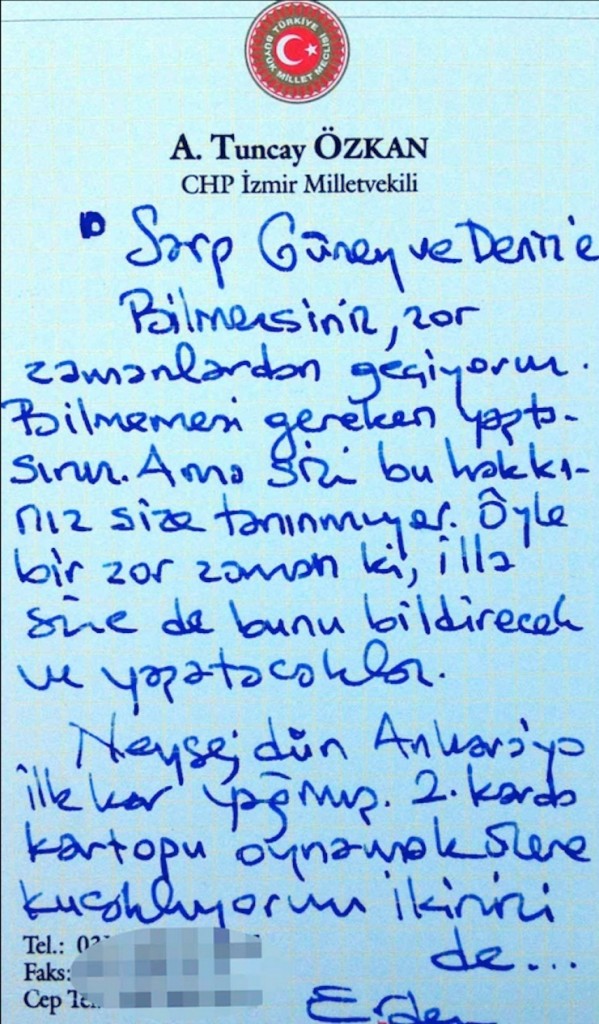 TÜRKİYE BÜYÜK MİLLET MECLİSİ
A. Tuncay ÖZKAN
CHP İzmir Milletvekili
Sarp Güney ve Deniz'e
Bilmezsiniz, zor
zamanlardan geçiyoruz.
Bilmemeniz gereken yaşta-
sınız. Ama sizi bu hakkı-
nız size tanınmıyor. Öyle
bir zor zaman ki, illa
size de bunu bildirecek
ve yaşatacaklar.
Neyse, dün Ankara'ya
ilk kar yağmış. 2. karda
kartopu oynamak üzere
kucaklıyorum ikinizi
de...
Tel.:
Faks:
Cep Tel.
Erdem